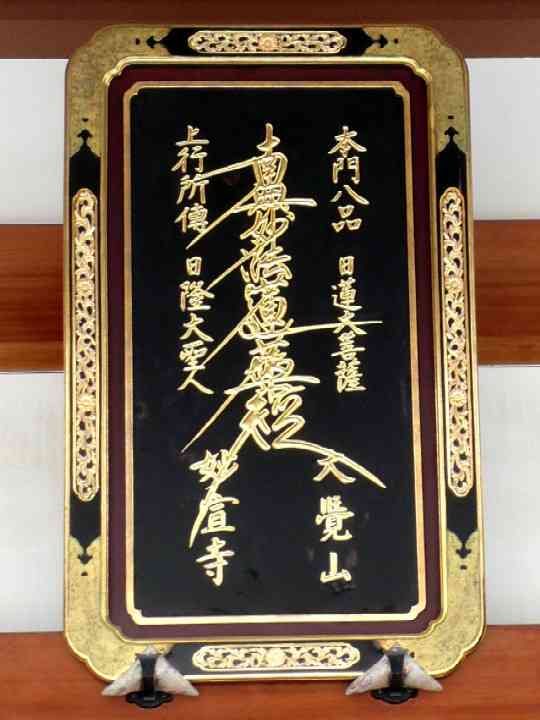 本門八品 日蓮大菩薩
大覺山
南無妙法蓮華経
上行所傳 日隆大聖人
妙宣寺